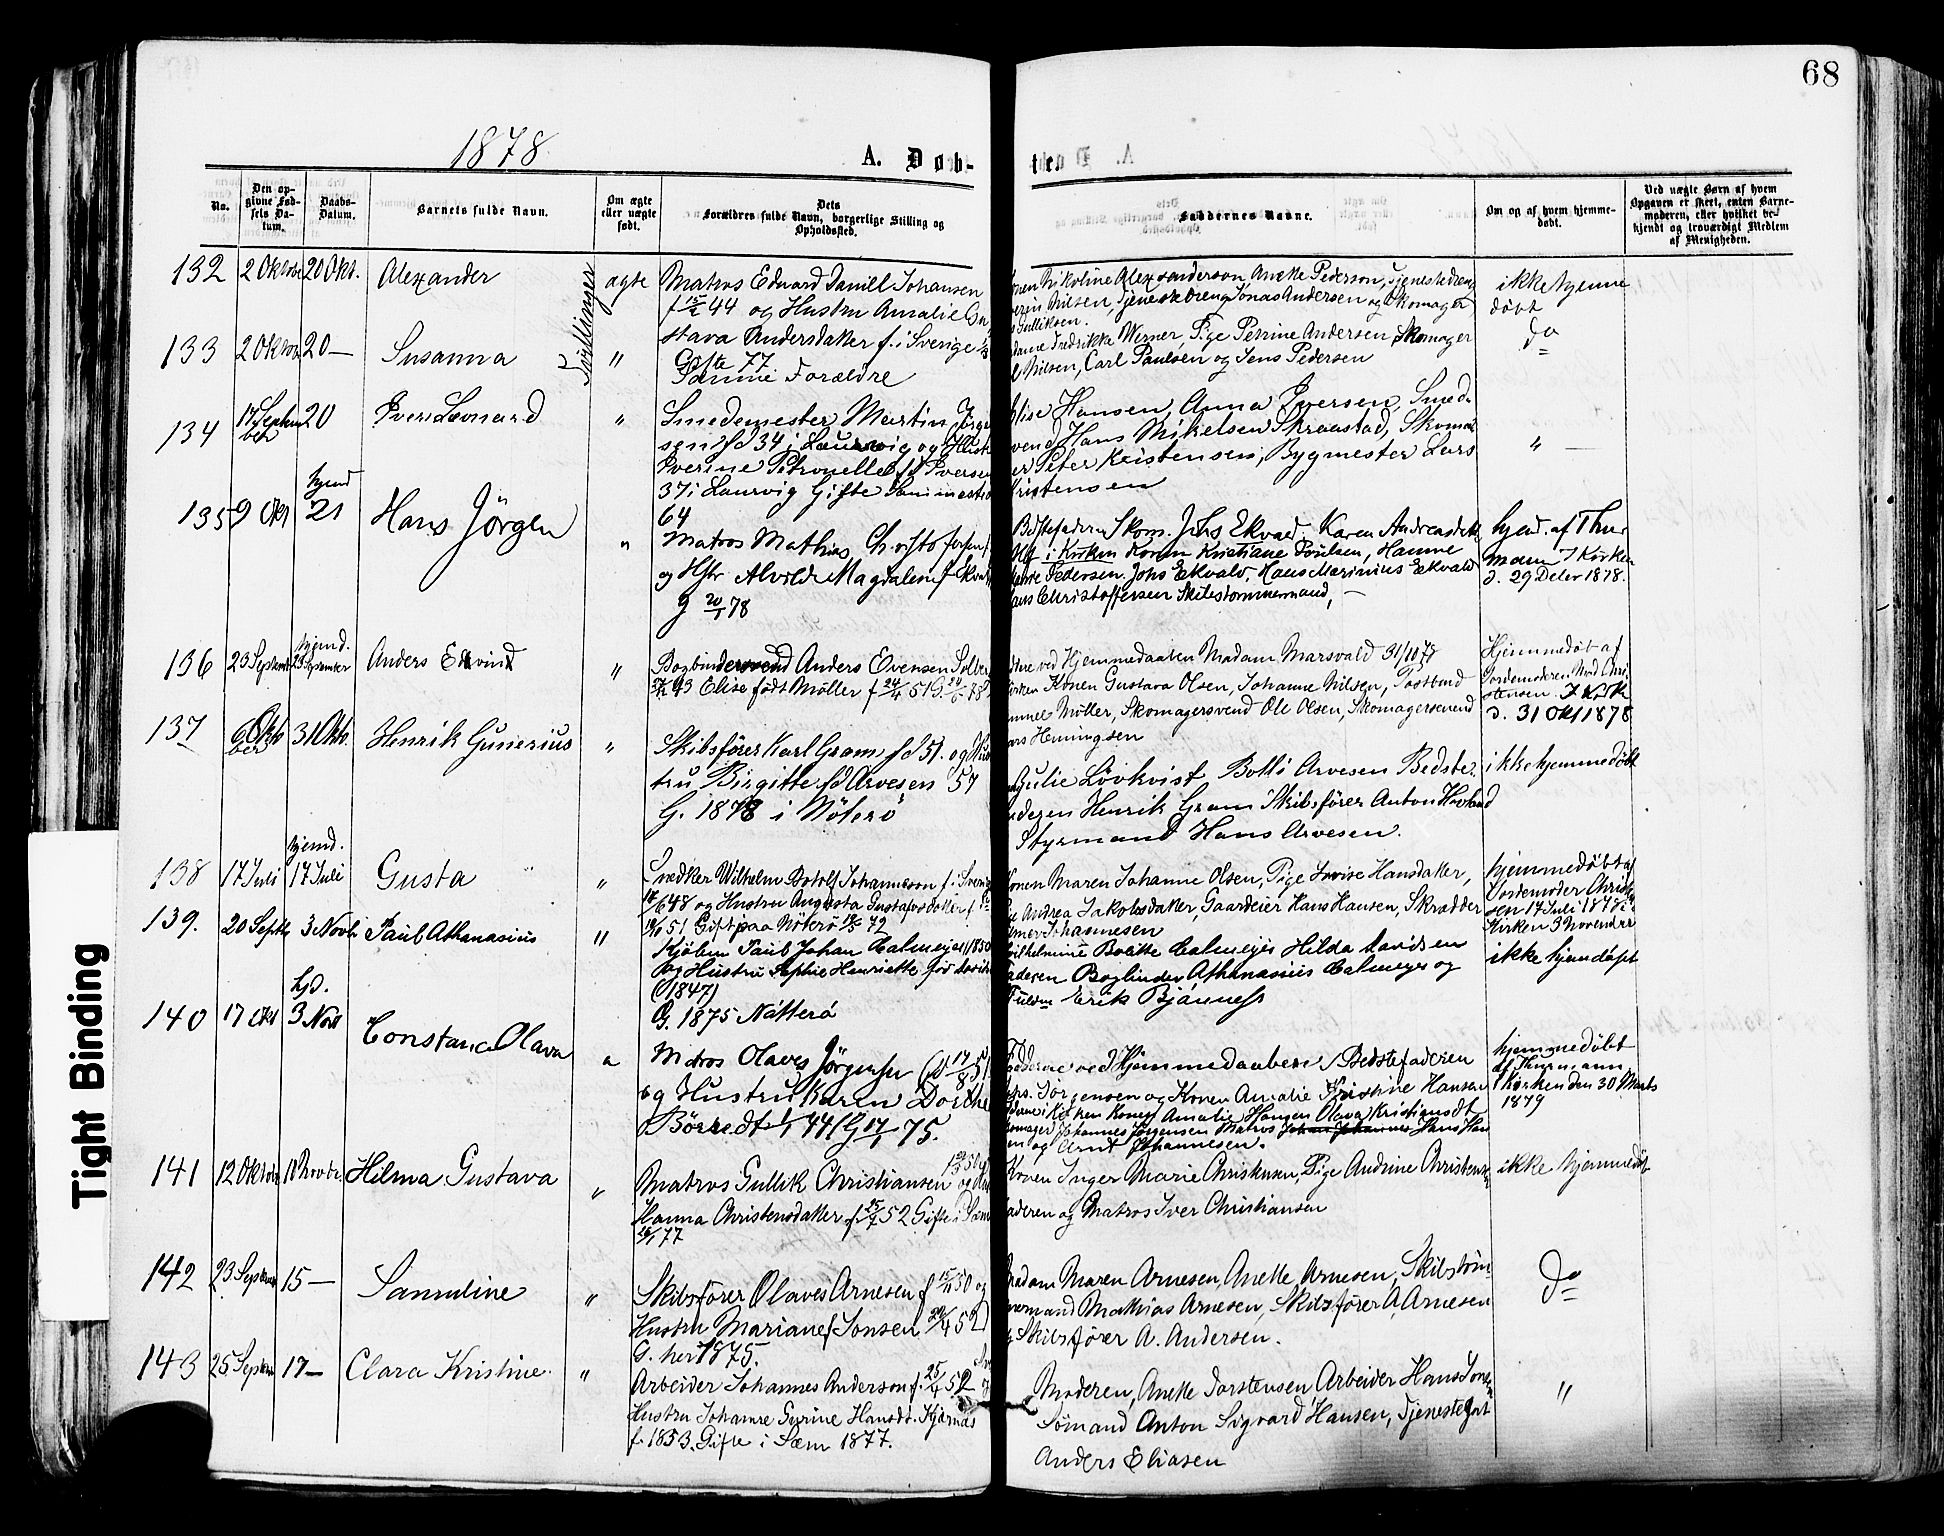 68
1878
A. Døb-
te.
No.
Den op-
givne Fød-
sels Da-
tum.
Daabs-
Datum.
Barnets fulde Navn.
Om ægte
eller uægte
født.
Dets
Forældres fulde Navn, borgerlige Stilling og
Opholdssted.
Faddernes Navne.
Om og af hvem hjemme-
døbt.
Ved uægte Børn af hvem
Opgaven er skeet, enten Barne-
moderen, eller hvilket be-
kjendt og troværdigt Medlem
af Menigheden.
132 2 Oktobe 20 Okt. Alexander Tvillinger ægte
Matros Edvard Daniel Johansen
44 og Hustru Amalie Gu
stava Andersdatter f. i Sverige
Gifte 77
Nikoline Alexanderson, Anette Pederson, Tjenestedreng
Nilsen, Tjenestedreng Jonas Andersen og Skomager
Gulliksen.
ikke hjemme
døbt
133 2 Oktob 20 — Susanna "
Samme Forældre
Fredrikke Werner, Pige Petrine Andersen Skomager
Nilsen, Carl Paulsen og Jens Pedersen
do
134 17 Septem
ber 20 Iver Leonard "
Smedemester Martin Jørge
sen fd 34 i Laurvig og Hust
Iverine Petronelle fd Iversen
37 i Laurvig Gifte sammested
64
Elise Hansen, Anna Iversen, Smed-
svend Hans Mikelsen Skraastad, Skoma
er Peter Kristensen, Bygmester Lars
Kristensen
" —
135 9 Okt hjmd
21 Hans Jörgen "
Matros Mathias Christofersen
og Hstr Alvilde Magdalene f. Ekva
G 20/1 78
Bdstefaderen Skom. Johs Ekvald. Karen Andreasdtt
i Kirken Karen Kristiane Poulsen, Hanne
Pedersen. Johs Ekvald, Hans Marinius Ekvald
Christoffersen Skibstømmermand, —
hjmd. af Thur
mann I Kirken
d. 29 Decbr 1878.
136 23 Septemb hjemd.
23 September Anders Edvind "
Bogbindersvend Anders Evensen Solber
43 Elise født Møller f 24/4 51 G.
ved Hjemmedaaben Madam Marsvald
Kirken Konen Gustava Olsen, Johanne Nilsen, Postbud
Møller, Skomagersvend Ole Olsen, Skomagersvend
Lars Hemingsen
Hjemmedøbt af
Jordemoderen Mrd Chri-
stensen. I Kirk
d. 31 Okt 1878
137 6 Okto
ber 31 Okto. Henrik Gunerius "
Skibsfører Karl Gram f d 51. og Hus
tru Birgitte fd Arvesen 57
G. 1878 i Nöterö
Julie Lövkvist Bolló Arvesen Bedste-
faderen Henrik Gram Skibsfører Anton Havland
Styrmand Hans Arvesen.
ikke hjemmedøbt
138 17 Juli hjemd.
17 Juli Gusta "
Snedker Wilhelm Botolf Johannesson f. i Sverig
48 og Hustru Augusta Gustafvsdotter f.
51 Gift paa Nöterö 72
Konen Maren Johanne Olsen, Pige Lovise Hansdatter,
Andrea Jakobsdatter, Gaardeier Hans Hansen, Skrædder
Johannesen
hjemmedøbt af
Jordemoder Christ
sen 17 Juli 1878 i
Kirken 3 November
139. 20 Septb 3 Novb Paul Athanasius "
Kjøbm Paul Johan Calmeyer 1850
og Hustru Sophie Henriette fød David
(1847)
G. 1875 Nötterö
Vilhelmine Bolette Calmeyer Hilda Davidsen
Faderen Bogbinder Athanasius Calmeyer og
Erik Bjønness
ikke hjemdøpt
140 17 Okt hjd.
3 Nov Constance Olava a
Matros Olaves Jörgensen (fd 17/8 51
og Hustru Karen Dorthe
Börresdt 44 (G 17/1 75.
Fadderne ved Hjemmedaaben: Bedstefaderen
Jörgensen og Konen Amalie Kristine Hansen
Fadderne i Kirken Konen Amalie Hansen Olava Kristiansdt
Skomager Johannes Jørgensen Matros Hans Han
sen og Arnt Johannesen.
hjemmedøbt
af Thurmann
I Kirken den 30 Marts
1879
141 12 Oktobe Novbr. Hilma Gustava "
Matros Gullik Christiansen og Hu
Hanna Christensdatter f. 52 Gifte i Sæm
77
Konen Inger Marie Christensen, Pige Andrine Christens
Faderen og Matros Iver Christiansen
ikke hjemmedøbt
142 23 Septem 15 — Samuline "
Skibsfører Olaves Arnesen f 50 og
Hustru Mariane f Jonsen 52)
G. her 1875.
Madam Maren Arnesen, Anette Arnesen, Skibstöm-
mermand Mathias Arnesen, Skibsfører A. Arnesen
og Skibsfører A. Andersen.
do
143 25 Septem 17 — Clara Kristine. "
Arbeider Johannes Anderson f. 25/4 52
Hustru Johanne Gurine Hansdt. Kjærnæs
f. 1853. Gifte i Sæm 1877.
Moderen, Anette Torstensen Arbeider Hans Jons
Sømand Anton Sigvard Hansen, Tjenestegut
Anders Eliasen
"
Tight Binding